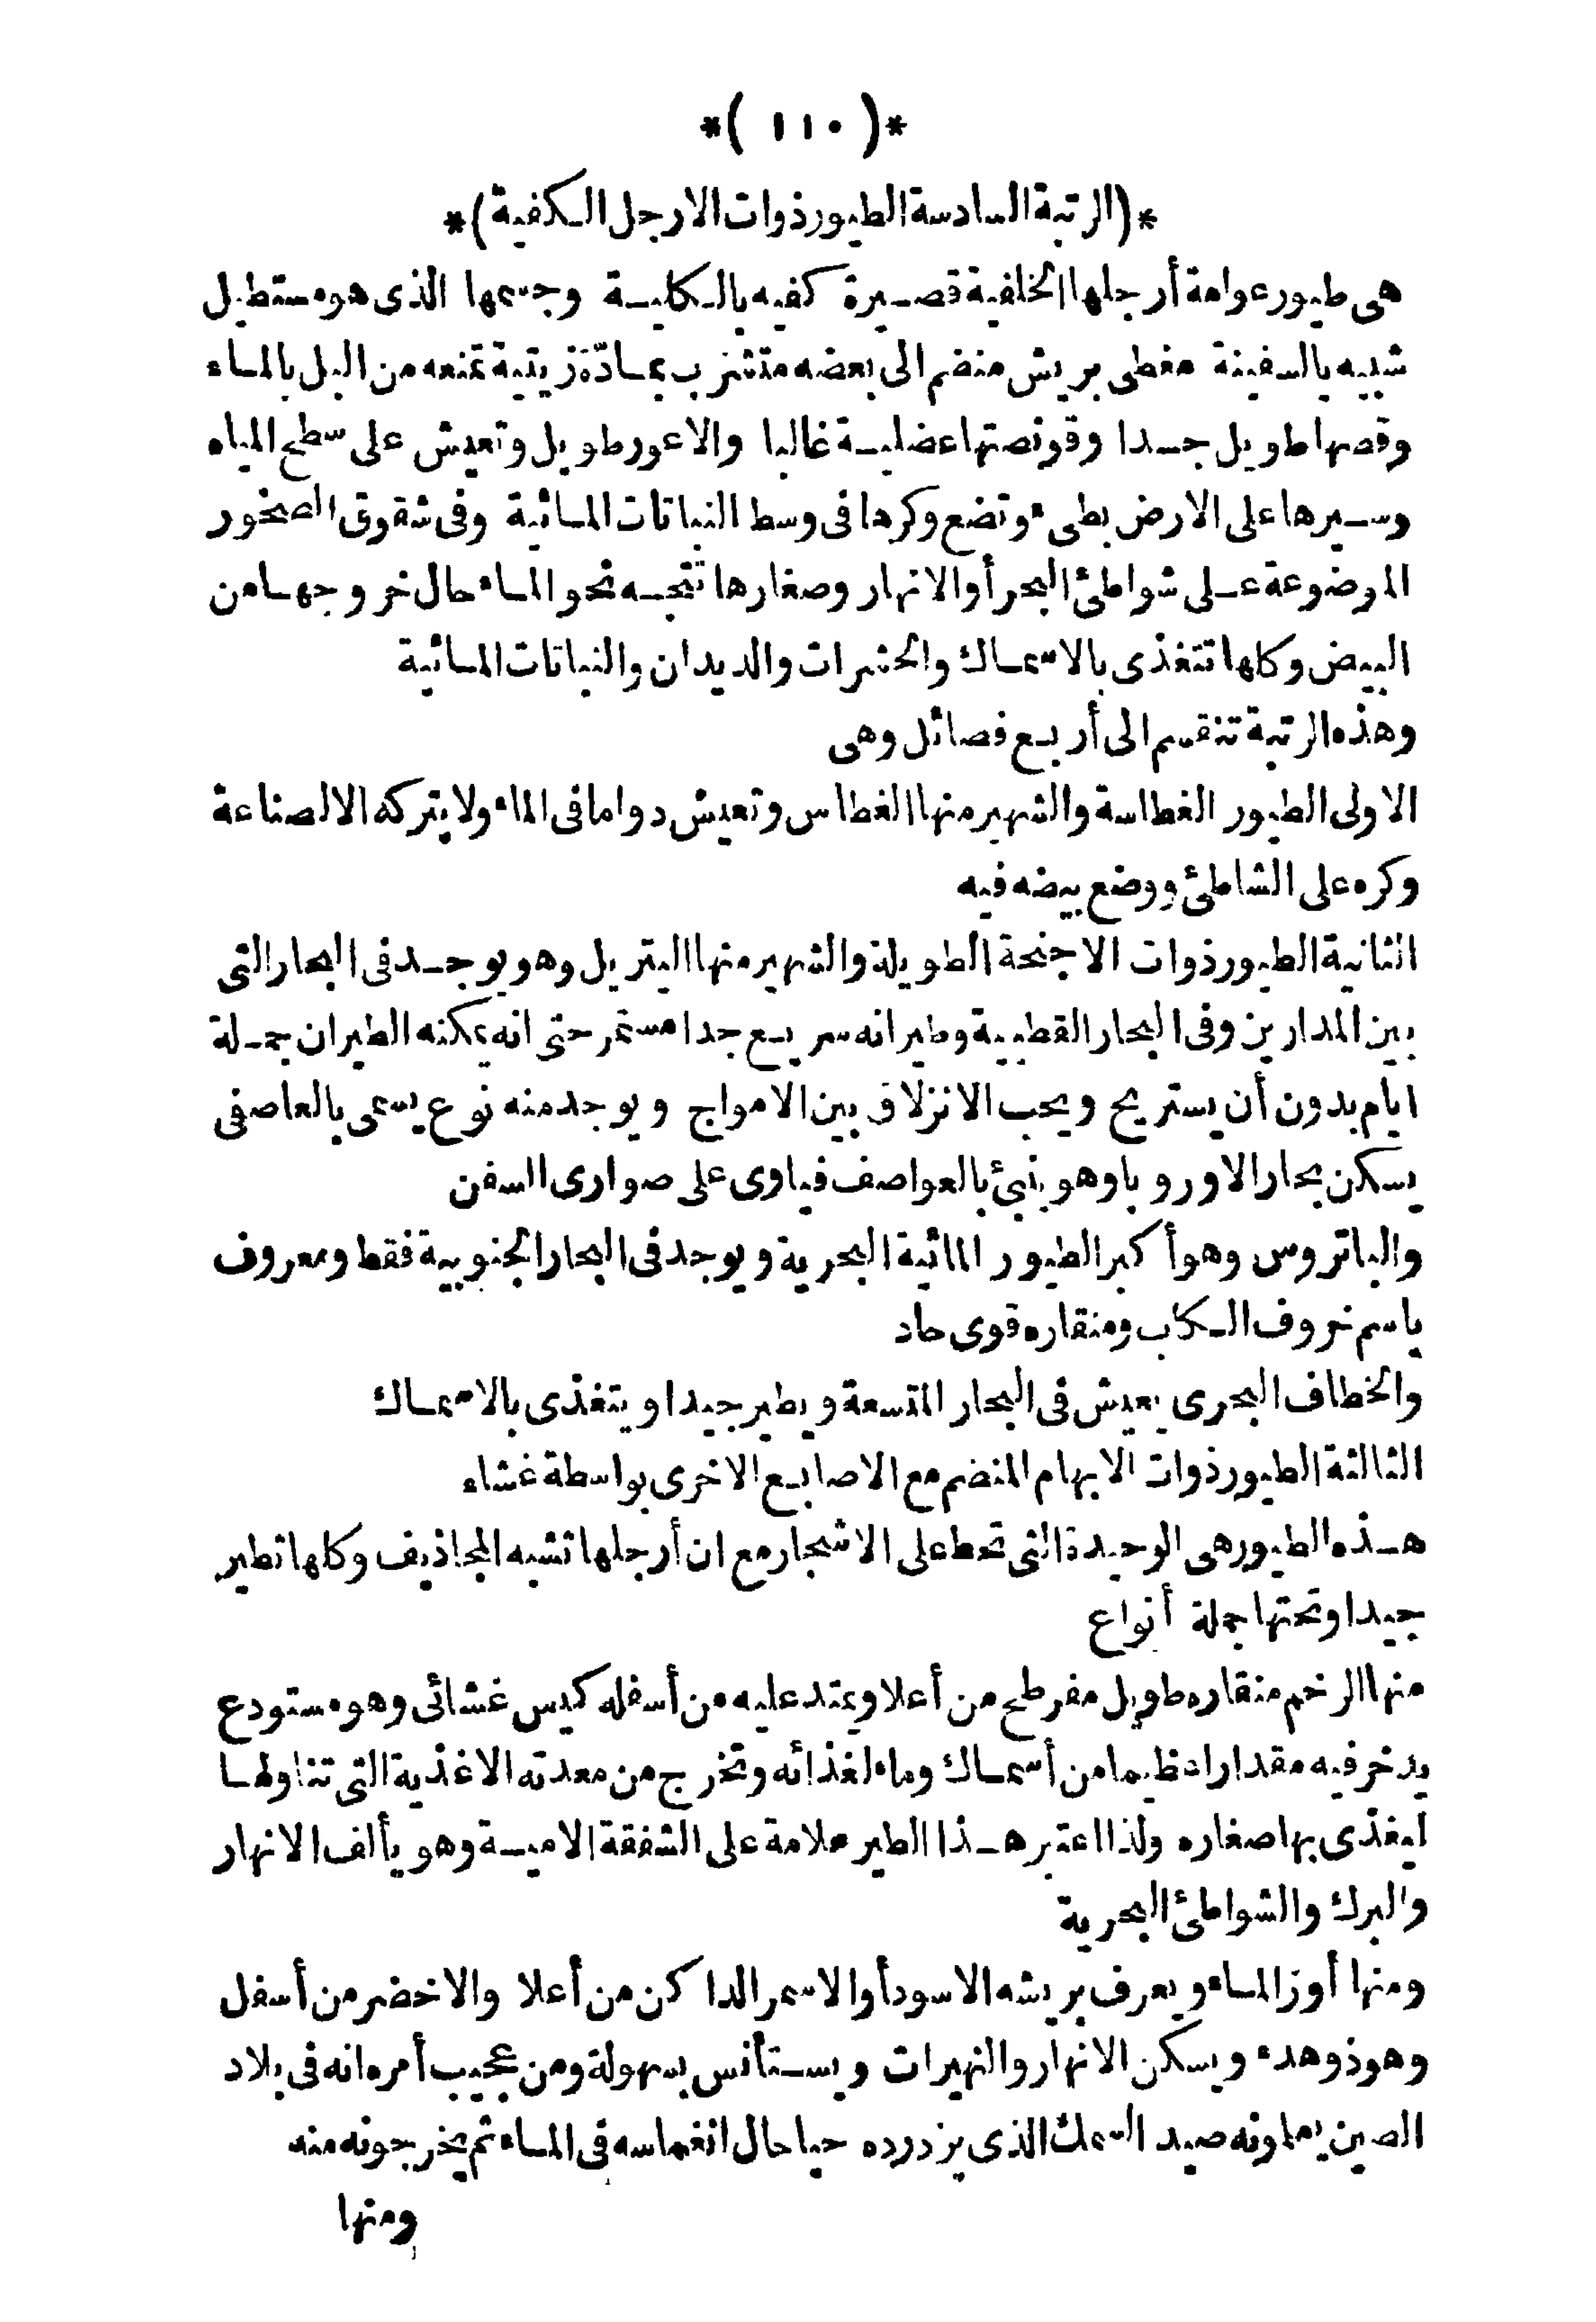 *( ١١٠ )*
*(الرتبة السادسة الطيور ذوات الارجل الكفية)*
هى طيور عوامة أرجلها الخلفية قصيرة كفيه بالكلية وجسمها الذى هو مستطيل
شبيه بالسفينة مغطى بريش منضم الى بعضه متشرب بمادّة زيتية تمنعه من البل بالماء
وقصها طويل جدا وقونصتها عضلية غالبا والاعور طويل وتعيش على سطح المياه
وسيرها على الارض بطىء وتضع وكرها فى وسط النباتات المائية وفى شقوق الصخور
الموضوعة على شواطئ البحر أو الانهار وصغارها تتجه نحو الماء حال خروجها من
البيض وكلها تتغذى بالاسماك والحشرات والديدان والنباتات المائية
وهذه الرتبة تنقسم الى أربع فصائل وهى
الاولى الطيور الغطاسة والشهير منها الغطاس وتعيش دواما فى الماء ولا يتركه الا لصناعة
وكره على الشاطئ ووضع بيضه فيه
الثانية الطيور ذوات الاجنحة الطويلة والشهير منها البتريل وهو يوجد فى البحار التى
بين المدارين وفى البحار القطبية وطيرانه سريع جدا مستمر حتى انه يمكنه الطيران جملة
ايام بدون أن يستريح ويحب الانزلاق بين الامواج ويوجد منه نوع يسمى بالعاصفى
يسكن بحار الاوروبا وهو ينبئ بالعواصف فياوى على صوارى السفن
والباتروس وهو أكبر الطيور المائية البحرية ويوجد فى البحار الجنوبية فقط ومعروف
باسم خروف الكاب ومنقاره قوى حاد
والخطاف البحرى يعيش فى البحار المتسعة ويطير جيدا ويتغذى بالاسماك
الثالثة الطيور ذوات الابهام المنضم مع الاصابع الاخرى بواسطة غشاء
هذه الطيور هى الوحيدة التى تحط على الاشجار مع ان أرجلها تشبه المجاذيف وكلها تطير
جيدا وتحتها جملة أنواع
منها الرخم منقاره طويل مفرطح من أعلا ويمتد عليه من أسفله كيس غشائى وهو مستودع
يدخر فيه مقدارا عظيما من أسماك وماء لغذائه وتخرج من معدته الاغذية التى تناولها
ليغذى بها صغاره ولذا اعتبر هذا الطير علامة على الشفقة الامية وهو يألف الانهار
والبرك والشواطئ البحرية
ومنها أوز الماء ويعرف بريشه الاسود أو الاسمر الداكن من أعلا والاخضر من أسفل
وهو ذو هدء ويسكن الانهار والنهيرات ويستأنس بسهولة ومن عجيب أمره انه فى بلاد
الصين يعلونه صيد السمك الذى يزدرده حيا حال انغماسه فى الماء ثم يخرجونه منه
ومنها